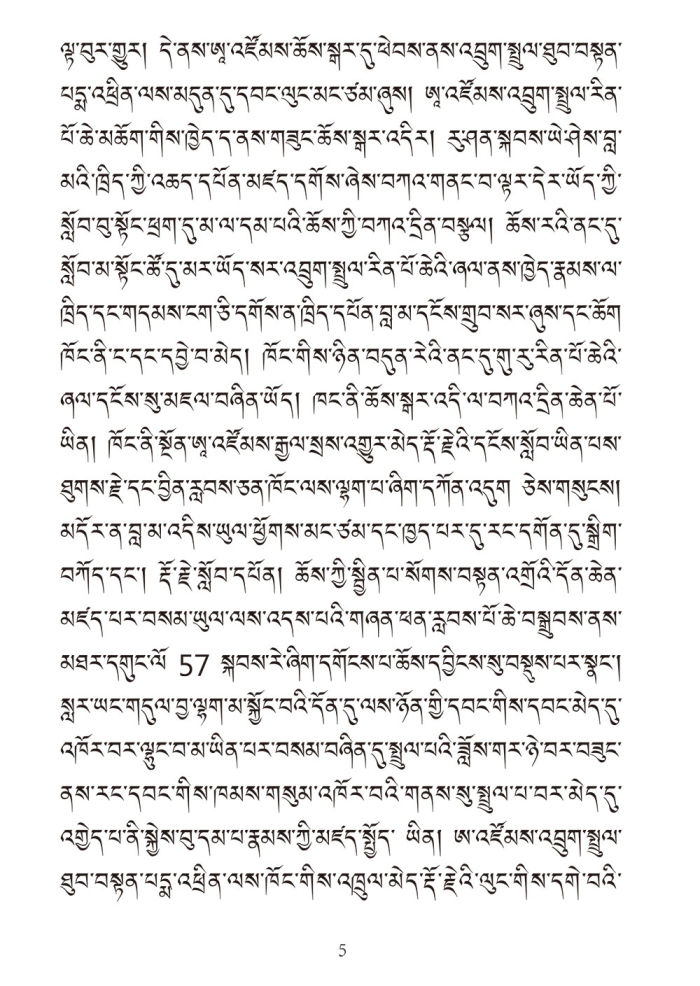 ལྟ་བུར་གྱུར། དེ་ནས་ཨཱ་འཛོམས་ཆོས་སྒར་དུ་ཕེབས་ནས་འབྲུག་སྤྲུལ་ཐུབ་བསྟན་
པདྨ་འཕྲིན་ལས་མདུན་དུ་དབང་ལུང་མང་ཙམ་ཞུས། ཨཱ་འཛོམས་འབྲུག་སྤྲུལ་རིན་
པོ་ཆེ་མཆོག་གིས་ཁྱེད་ད་ནས་གཟུང་ཆོས་སྒར་འདིར། རུ་ཤན་སྐབས་ཡེ་ཤེས་བླ་
མའི་ཁྲིད་ཀྱི་འཆད་དཔོན་མཛད་དགོས་ཞེས་བཀའ་གནང་བ་ལྟར་དེར་ཡོད་ཀྱི་
སློབ་བུ་སྟོང་ཕྲག་དུ་མ་ལ་དམ་པའི་ཆོས་ཀྱི་བཀའ་དྲིན་བསྩལ། ཆོས་རའི་ནང་དུ་
སློབ་མ་སྟོང་ཚོ་དུ་མར་ཡོད་སར་འབྲུག་སྤྲུལ་རིན་པོ་ཆེའི་ཞལ་ནས་ཁྱེད་རྣམས་ལ་
ཁྲིད་དང་གདམས་ངག་ཅི་དགོས་ན་ཁྲིད་དཔོན་བླ་མ་དངོས་གྲུབ་སར་ཞུས་དང་ཆོག
ཁོང་ནི་ང་དང་དབྱེ་བ་མེད། ཁོང་གིས་ཉིན་བདུན་རེའི་ནང་དུ་གུ་རུ་རིན་པོ་ཆེའི་
ཞལ་དངོས་སུ་མཇལ་བཞིན་ཡོད། ཁང་ནི་ཆོས་སྒར་འདི་ལ་བཀའ་དྲིན་ཆེན་པོ་
ཡིན། ཁོང་ནི་སྔོན་ཨཱ་འཛོམས་རྒྱལ་སྲས་འགྱུར་མེད་རྡོ་རྗེའི་དངོས་སློབ་ཡིན་པས་
ཐུགས་རྗེ་དང་བྱིན་རླབས་ཅན་ཁོང་ལས་ལྷག་པ་ཞིག་དཀོན་འདུག ཅེས་གསུངས།
མདོར་ན་བླ་མ་འདིས་ཡུལ་ཕྱོགས་མང་ཙམ་དང་ཁྱད་པར་དུ་རང་དགོན་དུ་སྒྲིག་
བཀོད་དང་། རྡོ་རྗེ་སློབ་དཔོན། ཆོས་ཀྱི་སྦྱིན་པ་སོགས་བསྟན་འགྲོའི་དོན་ཆེན་
མཛད་པར་བསམ་ཡུལ་ལས་འདས་པའི་གཞན་ཕན་རླབས་པོ་ཆེ་བསྒྲུབས་ནས་
མཐར་དགུང་ལོ 57 སྐབས་རེ་ཞིག་དགོངས་པ་ཆོས་དབྱིངས་སུ་བསྡུས་པར་སྣང་།
སླར་ཡང་གདུལ་བྱ་ལྷག་མ་སྐྱོང་བའི་དོན་དུ་ལས་ཉོན་གྱི་དབང་གིས་དབང་མེད་དུ་
འཁོར་བར་ལྷུང་བ་མ་ཡིན་པར་བསམ་བཞིན་དུ་སྤྲུལ་པའི་ཟློས་གར་ཉེ་བར་བཟུང་
ནས་རང་དབང་གིས་ཁམས་གསུམ་འཁོར་བའི་གནས་སུ་སྤྲུལ་པ་བར་མེད་དུ་
འགྱེད་པ་ནི་སྐྱེས་བུ་དམ་པ་རྣམས་ཀྱི་མཛད་སྤྱོད་ ཡིན། ཨ་འཛོམས་འབྲུག་སྤྲུལ་
ཐུབ་བསྟན་པདྨ་འཕྲིན་ལས་ཁོང་གིས་འཁྲུལ་མེད་རྡོ་རྗེའི་ལུང་གིས་དགེ་བའི་
5